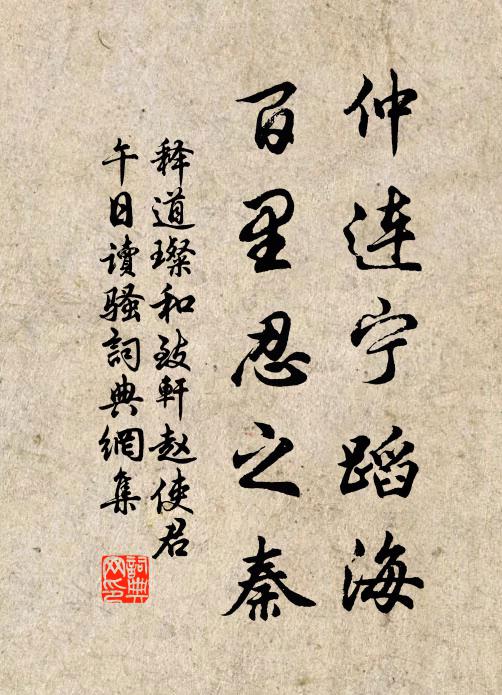 仲连宁蹈海
百里忍之秦
释道璨和致轩赵使君
午日读骚词典網集
詞典网印